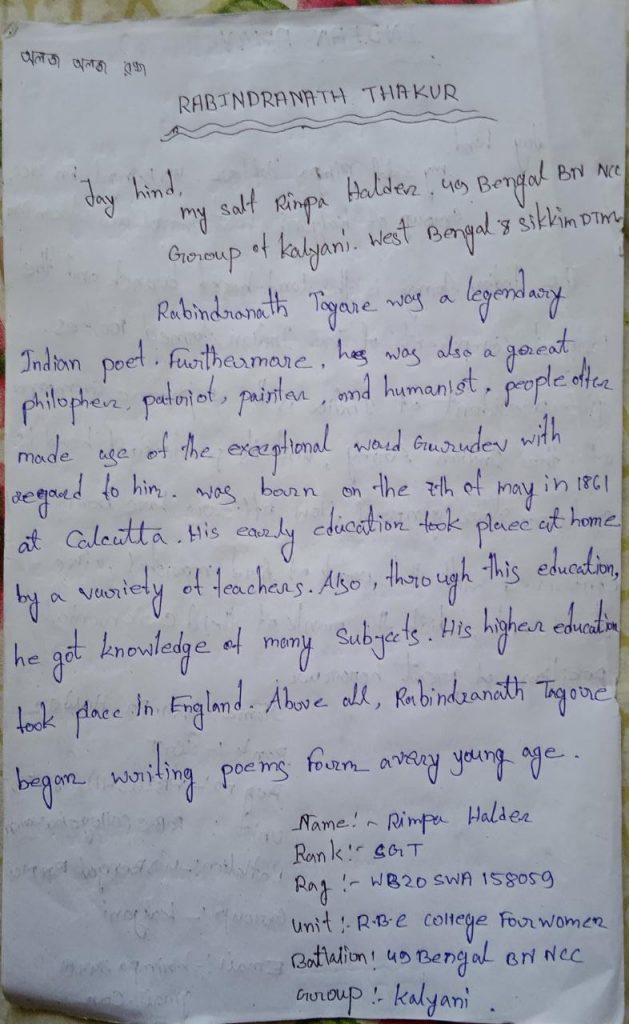 RABINDRANATH THAKUR
Jay hind,
my salf Rimpa Halder. 49 Bengal BN NCC
Group of Kalyani. West Bengal & Sikkim DTM
Rabindranath Tagore was a legendary
Indian poet. Furthermore, he was also a great
philopher, patriot, painter, and humanist. people often
made use of the exceptional ward Gurudev with
regard to him. was barn on the 7th of may in 1861
at Calcutta. His early education took place at home
by a variety of teachers. Also, through this education,
he got knowledge of many Subjects. His higher education
took place In England. Above all, Rabindranath Tagore
began writing poems form avery young age.
Name:- Rimpa Halder
Rank:- SGT
Rag:- WB20 SWA 158059
unit:- R.B.C college Four women
Battalion: 49 Bengal BN NCC
Group:- Kalyani.